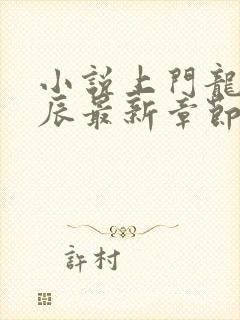 小說上門龍
辰最新章節
許村